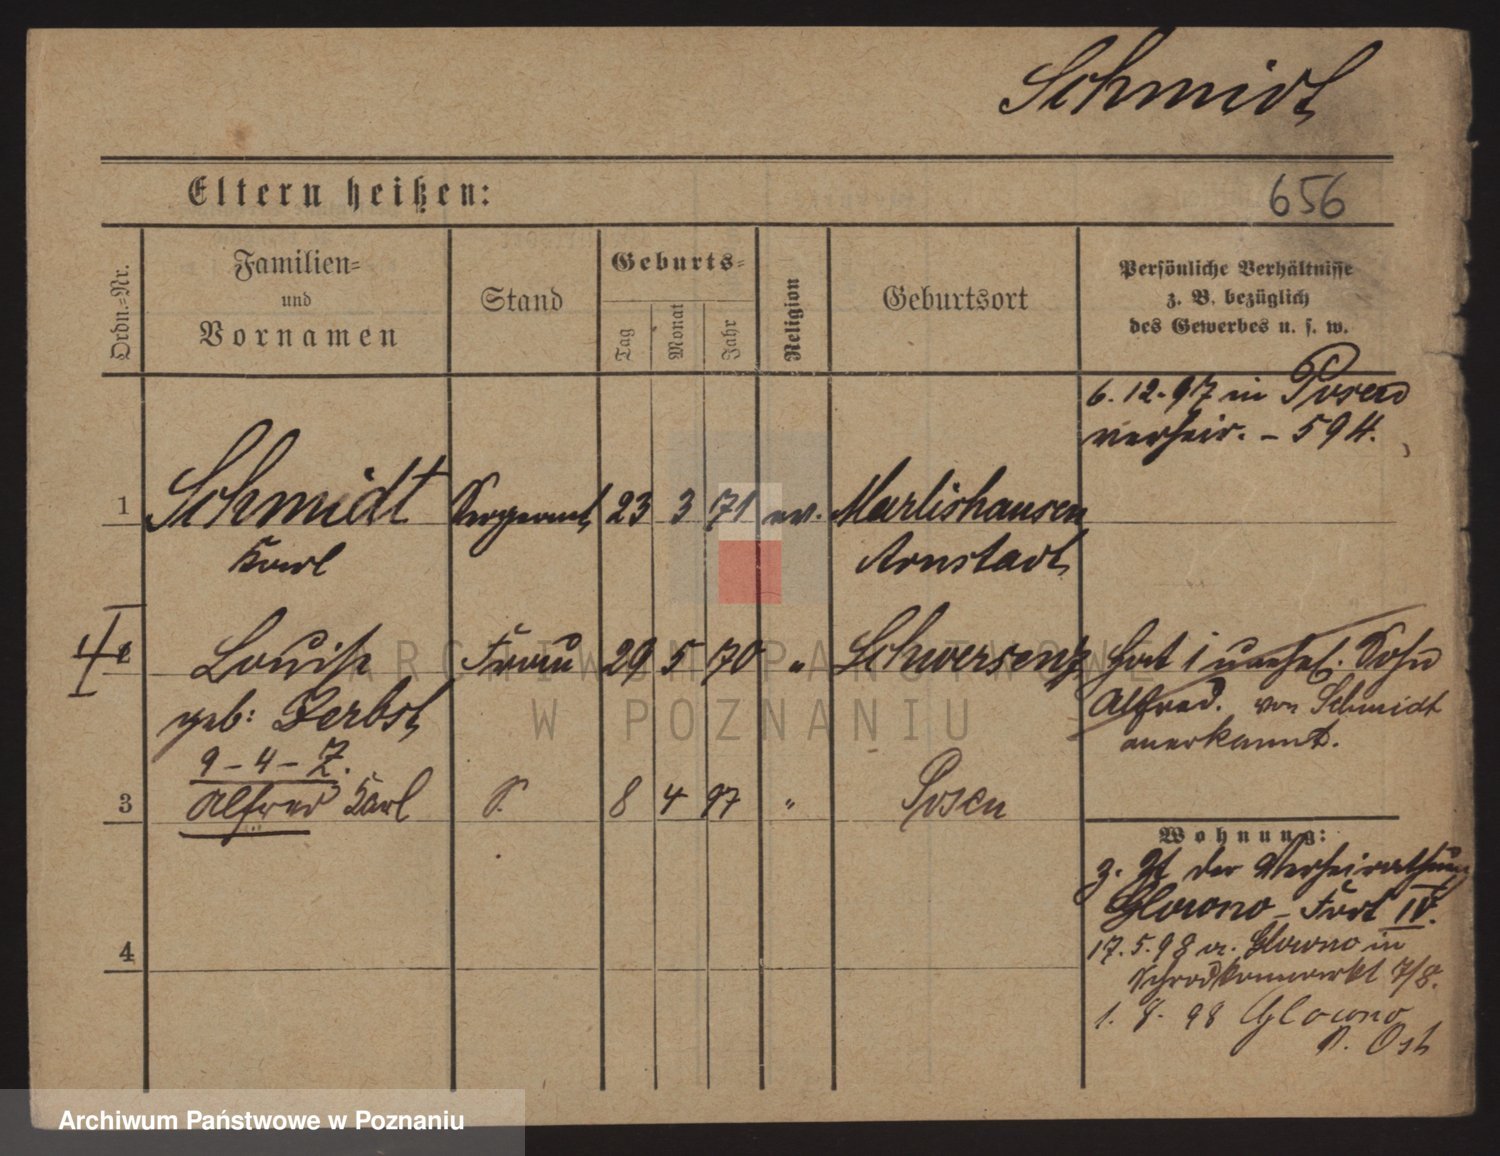 Schmidt
Eltern heißen:
656
Ordn.=Nr.
Familien=
und
Vornamen
Stand
Geburts=
Tag
Monat
Jahr
Religion
Geburtsort
Persönliche Verhältnisse
z. B. bezüglich
des Gewerbes u. s. w.
6. 12. 97 in Posen
verheir. – 594.
1 Schmidt Sergeant 23 3 71 ev. Marlishausen
Karl Arnstadt
2 Louise Frau 29 5 70 " Schwersenz Hat 1 unehel. Sohn
geb: Zerbst Alfred. von Schmidt
anerkannt.
9 – 4 – Z.
3 Alfred Karl S. 8 4 97 " Posen
Wohnung:
z. Zt der Verheirathung
Glowno – Fort IV.
17. 5. 98 a. Glowno in
7/8.
4
1. 8. 98 Glowno
n. Ost
ARCHIWUM PAŃSTWOWE
W POZNANIU
Archiwum Państwowe w Poznaniu